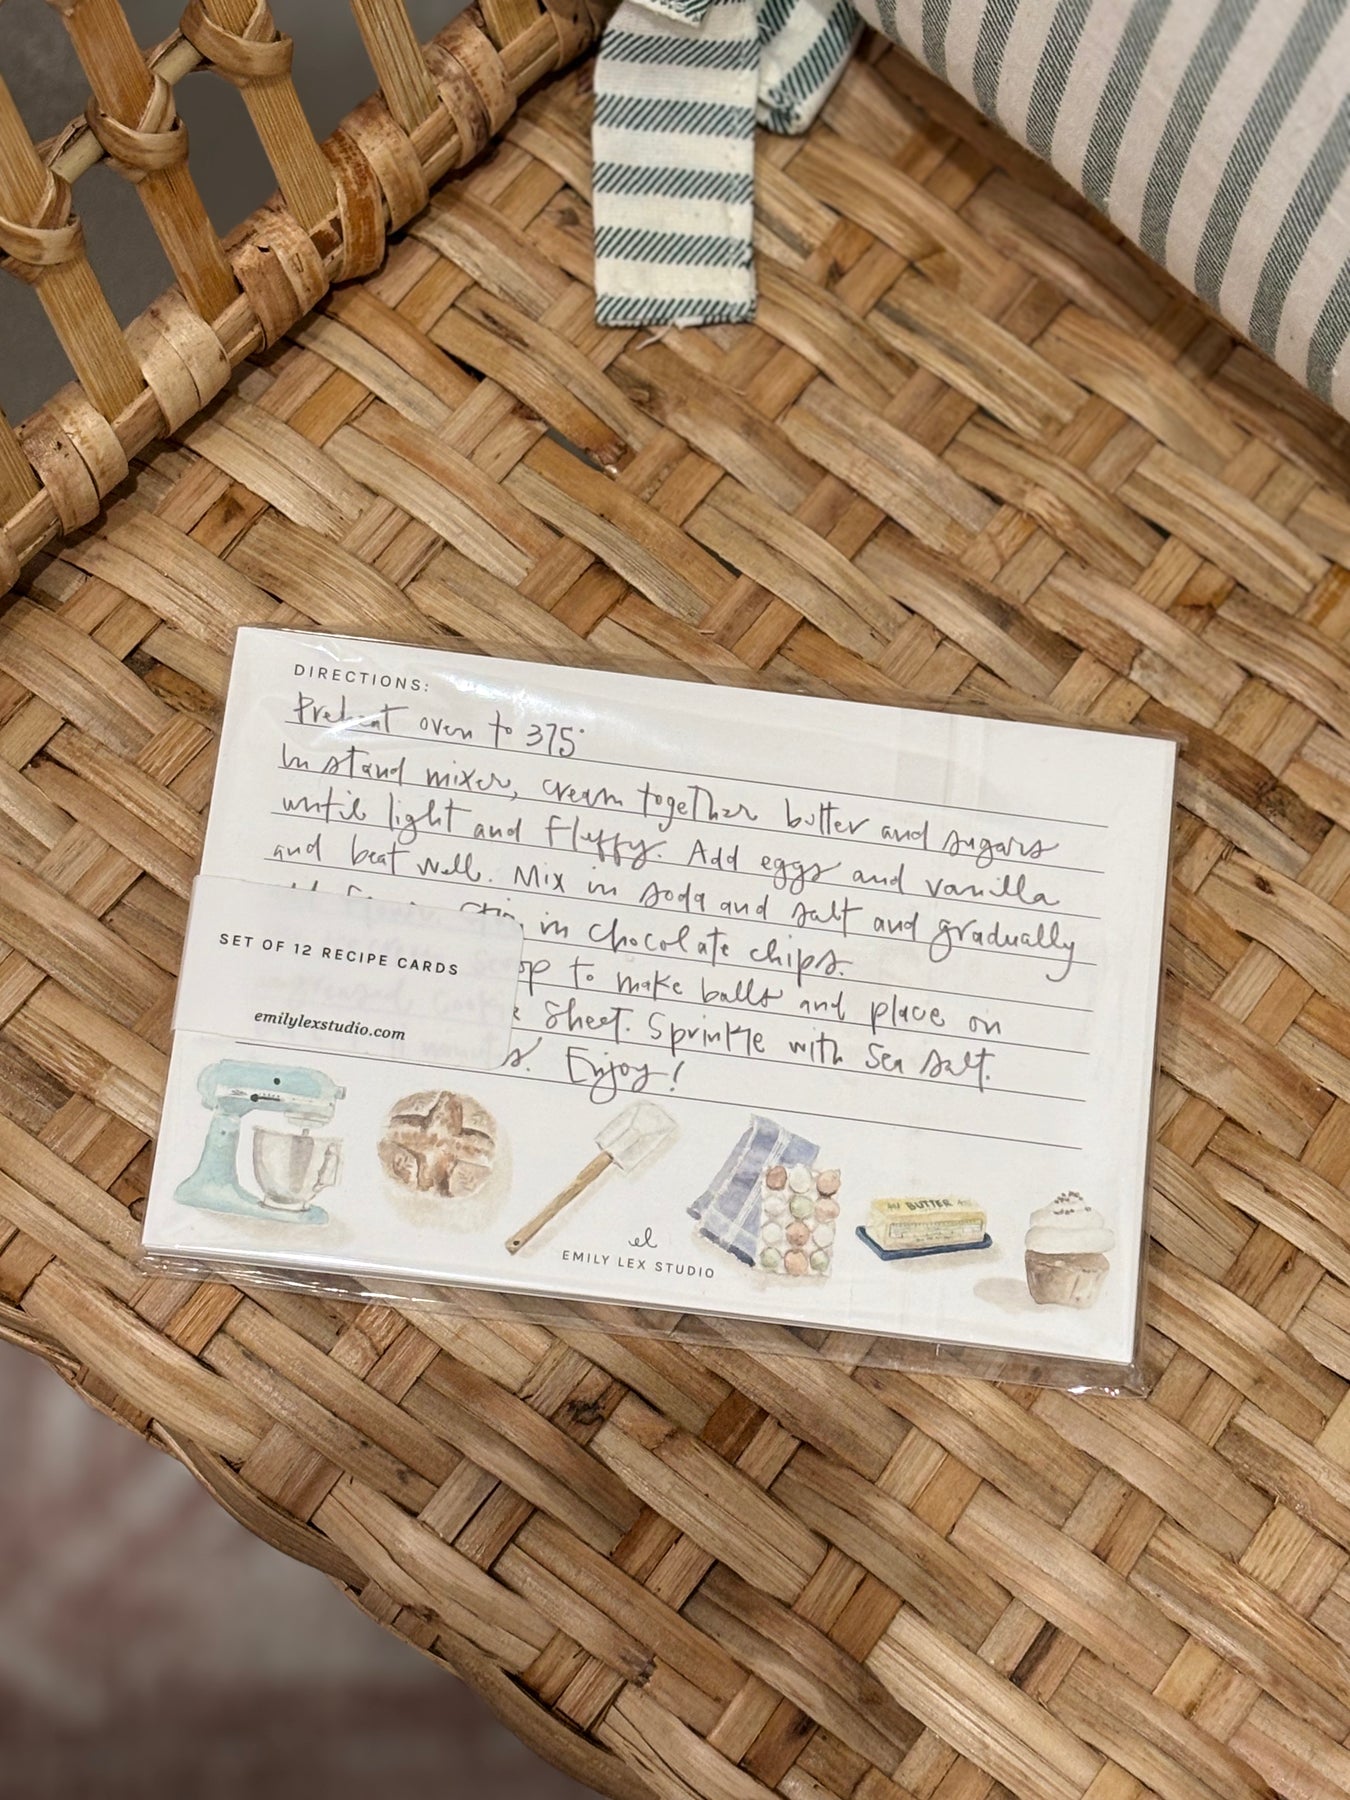 DIRECTIONS:
Preheat oven to 375°
In stand mixer, cream together butter and sugars
until light and fluffy. Add eggs and vanilla
and beat well. Mix in soda and salt and gradually
in chocolate chips.
to make balls and place on
Sheet. Sprinkle with Sea Salt.
Enjoy!
SET OF 12 RECIPE CARDS
emilylexstudio.com
BUTTER
el
EMILY LEX STUDIO